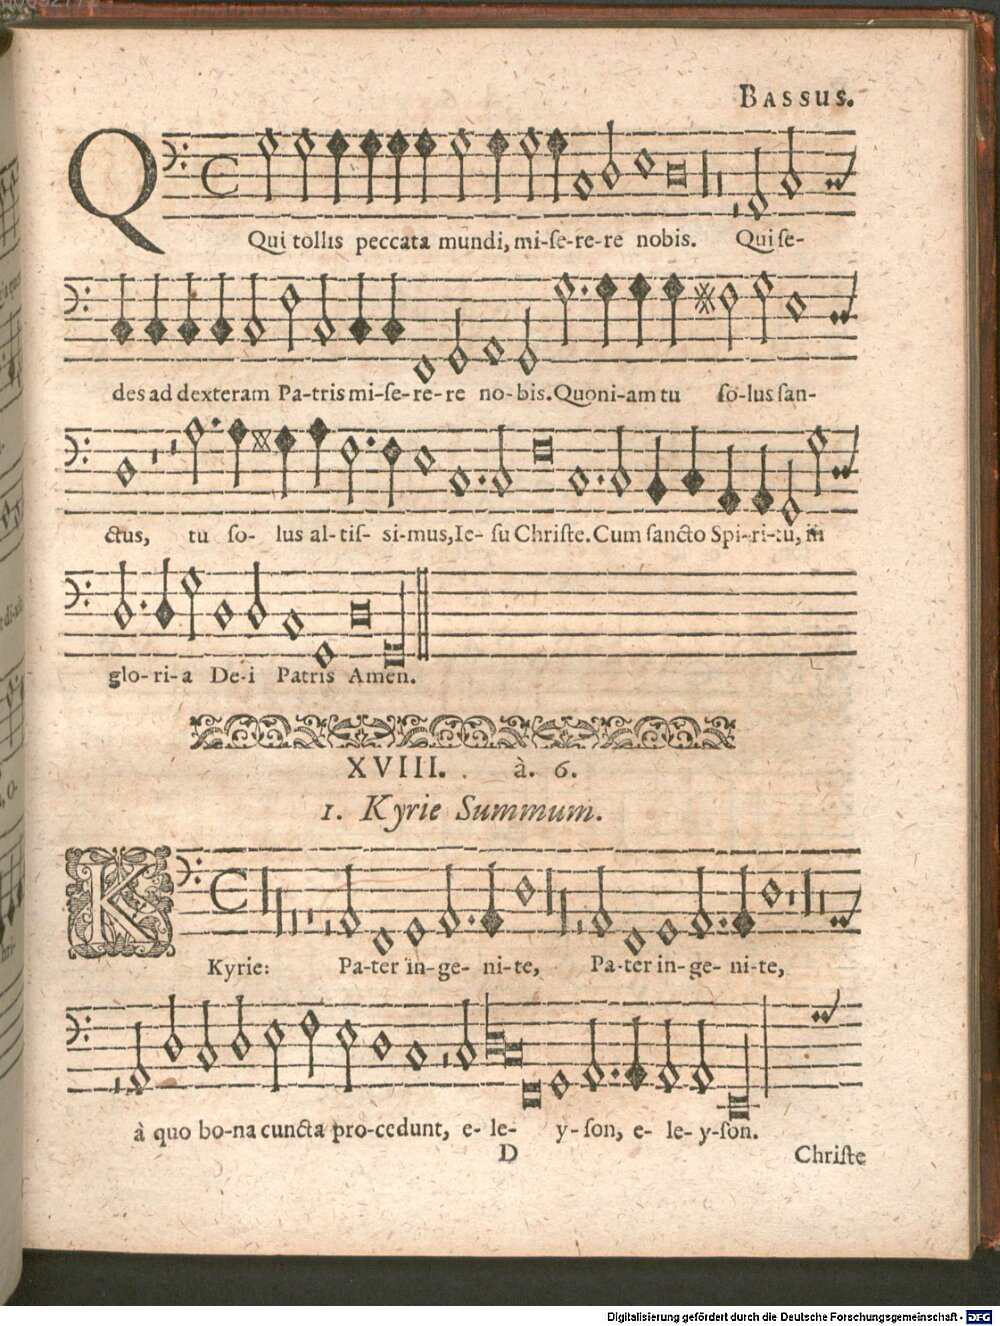 BASSUS.
Qui tollis peccata mundi, mi-ſe-re-re nobis. Qui ſe-
des ad dexteram Pa-tris mi-ſe-re-re no-bis. Quoni-am tu ſo-lus ſan-
ctus, tu ſo- lus al-tiſ- ſi-mus, Ie- ſu Chriſte. Cum ſancto Spi-ri-tu, in
glo-ri-a De-i Patris Amen.
XVIII. à. 6.
1. Kyrie Summum.
K
Kyrie: Pa-ter in-ge- ni-te, Pa-ter in-ge- ni-te,
à quo bo-na cuncta pro-cedunt, e- le- y-ſon, e- le- y-ſon.
D Chriſte
Digitalisierung gefördert durch die Deutsche Forschungsgemeinschaft - DFG